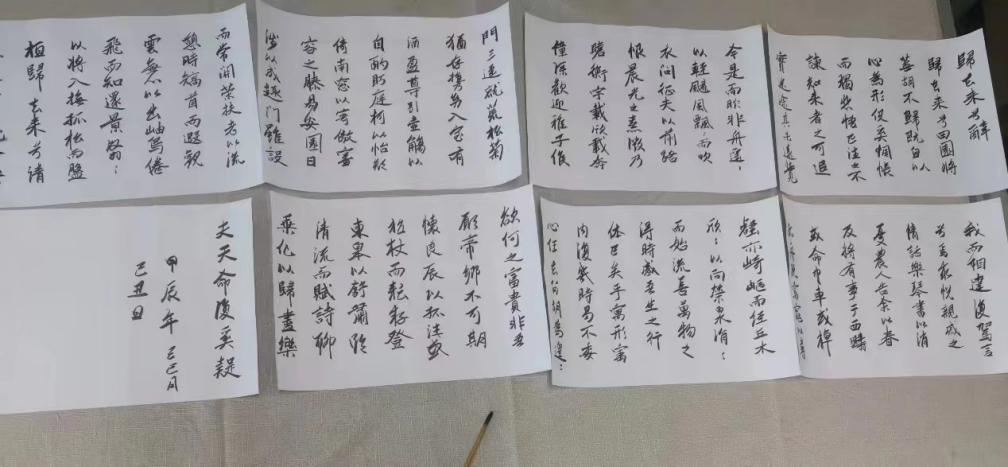 歸去来兮辭
歸去来兮田園將
蕪胡不歸既自以
心為形役奚惆悵
而獨悲悟已往之不
諫知来者之可追
實迷途其未遠覺
今是而昨非舟遥:
以輕颺風飄:而吹
衣问征夫以前路
恨晨光之熹微乃
瞻衡宇載欣載奔
僮僕歡迎稚子候
門三逕就荒松菊
猶存携幼入室有
酒盈尊引壶觴以
自酌眄庭柯以怡颜
倚南窓以寄傲審
容之膝易安園日
涉以成趣门雖設
而常関策扶老以流
憩時矯首而遐觀
雲無心以出岫鳥倦
飛而知還景翳:
以將入撫孤松而盤
桓歸去来兮请
我而相違復駕言
兮焉求悦親戚之
情話樂琴書以消
憂農人告余以春
及将有事于西疇
或命巾車或棹
壑亦崎嶇而经丘木
欣:以向榮泉涓:
而始流善萬物之
得時感吾生之行
休已矣乎寓形宇
内復幾時曷不委
心任去留胡為遑:
欲何之富貴非吾
願帝鄉不可期
懷良辰以孤往或
植杖而耘耔登
東皋以舒嘯临
清流而賦詩聊
乘化以歸盡樂
夫天命復奚疑
甲辰年 己巳月
己丑日